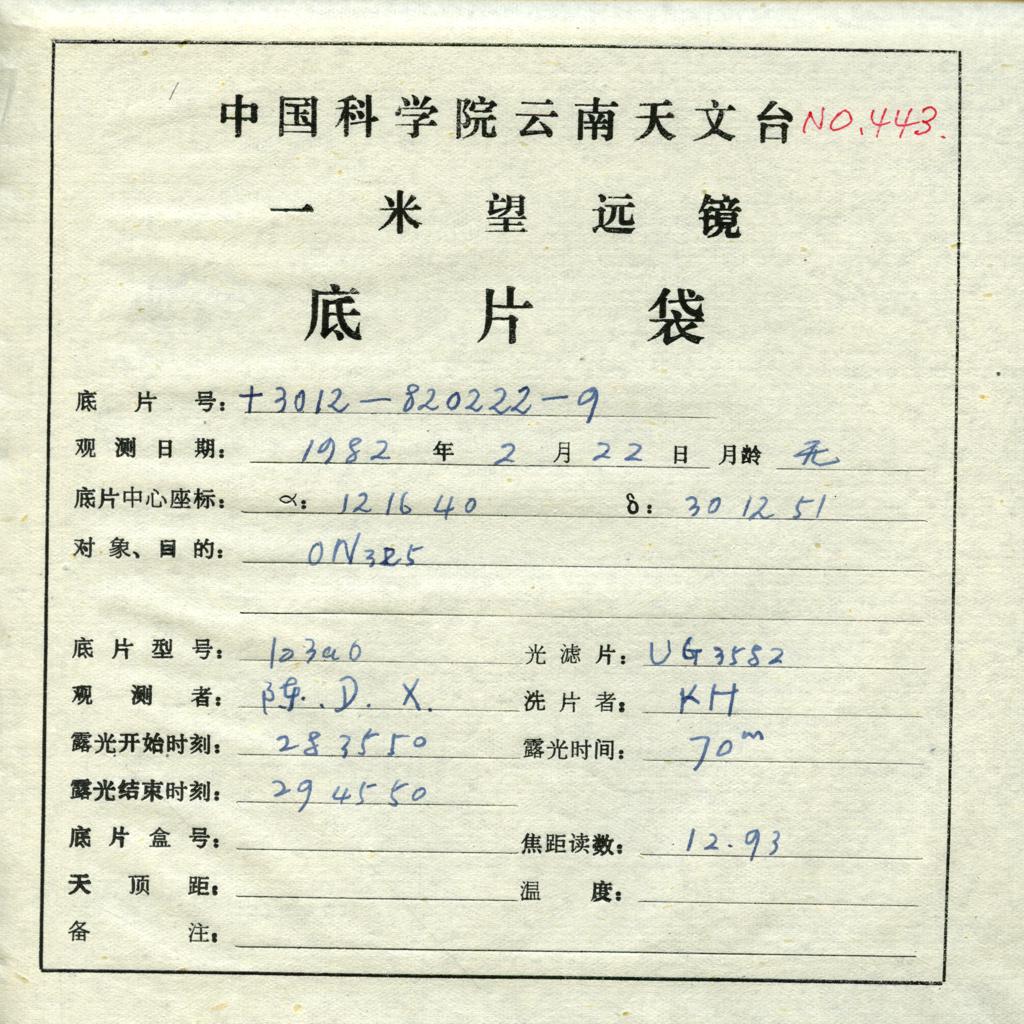 中国科学院云南天文台 NO.443.
一米望远镜
底片袋
底片号: +3012-820222-9
观测日期: 1982 年 2 月 22 日 月龄 无
底片中心座标: α: 12 16 40 δ: 30 12 51
对象、目的: ON325
底片型号: 103a0 光滤片: UG3582
观测者: 陈.D.X. 洗片者: KH
露光开始时刻: 28 35 50 露光时间: 70m
露光结束时刻: 29 45 50
底片盒号: 焦距读数: 12.93
天顶距: 温度:
备注: